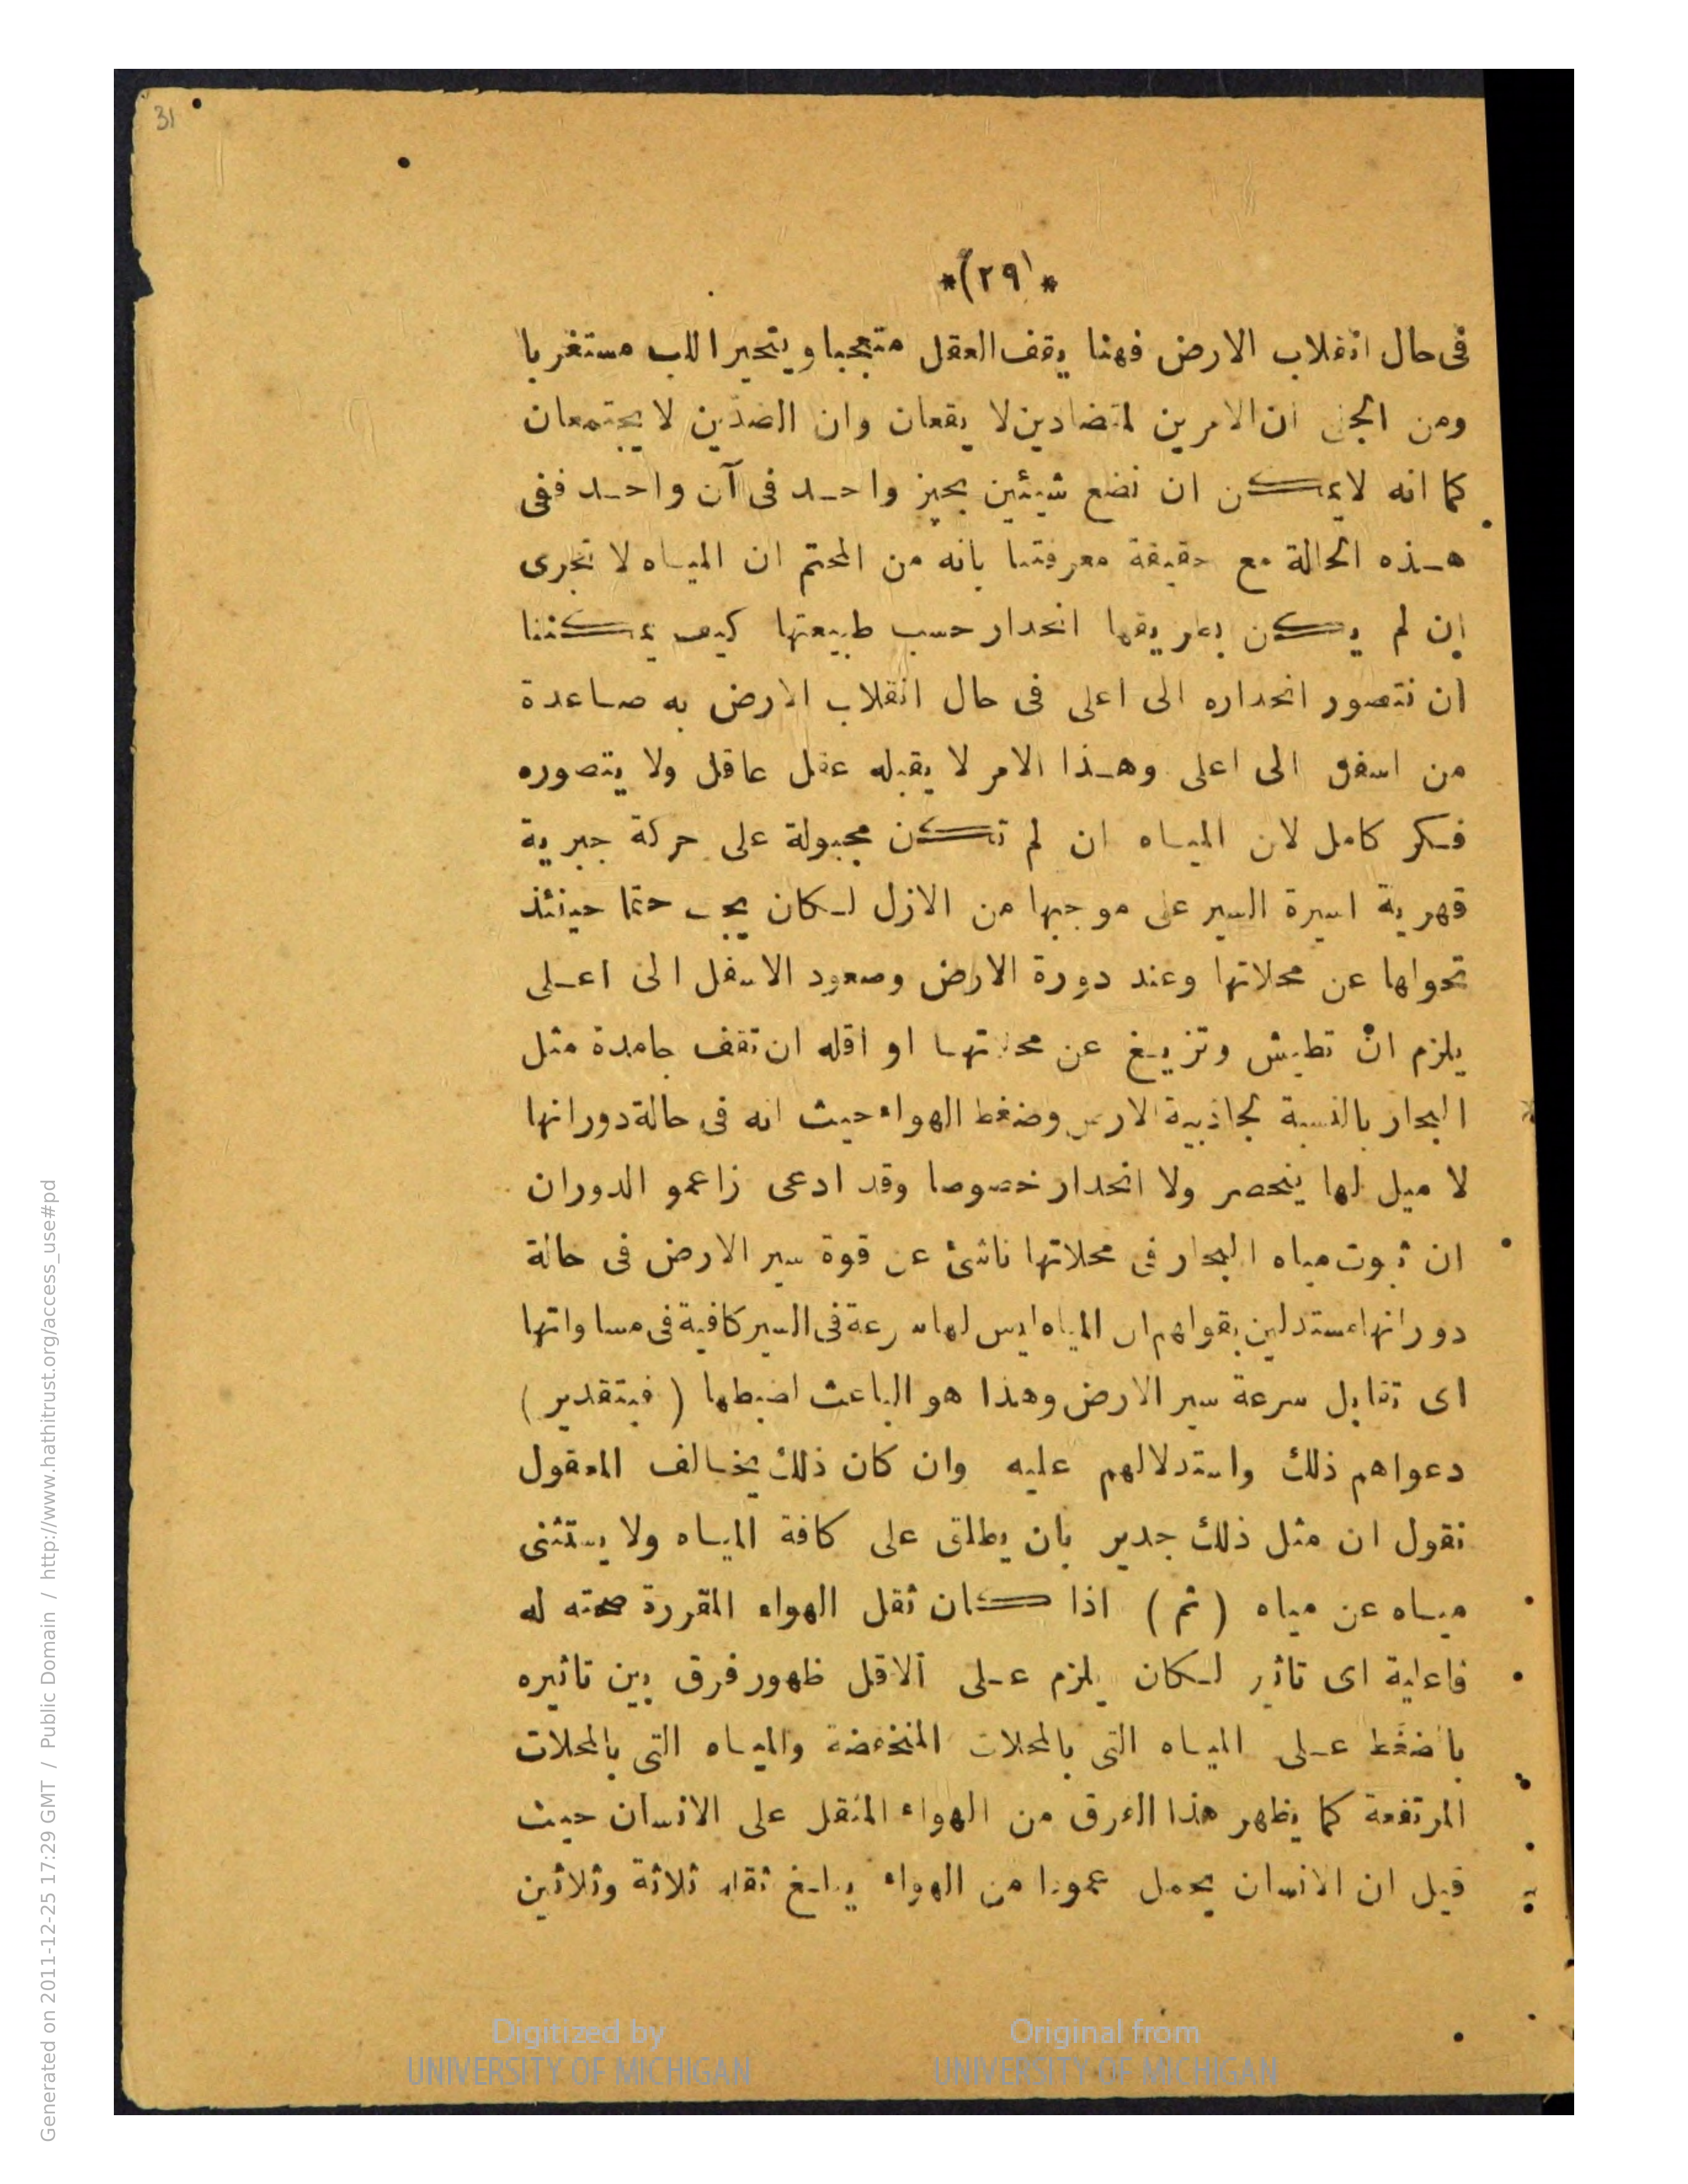 31
*(٢٩)*
فى حال انقلاب الارض فهنا يقف العقل متعجبا ويتحير اللب مستغربا
ومن الجلى ان الامرين المتضادين لا يقعان وان الضدين لا يجتمعان
كما انه لا يمكن ان نضع شيئين بحيز واحد فى آن واحد ففى
هذه الحالة مع حقيقة معرفتنا بانه من المحتم ان المياه لا تجرى
ان لم يكن بطريقها انحدار حسب طبيعتها كيف يمكننا
ان نتصور انحداره الى اعلى فى حال انقلاب الارض به صاعدة
من اسفل الى اعلى وهذا الامر لا يقبله عقل عاقل ولا يتصوره
فكر كامل لان المياه ان لم تكن مجبولة على حركة جبرية
قهرية اسيرة السير على موجبها من الازل لكان يجب حتما حينئذ
تحولها عن محلاتها وعند دورة الارض وصعود الاسفل الى اعلى
يلزم ان تطيش وتزيغ عن محلاتها او اقله ان تقف جامدة مثل
البحار بالنسبة لجاذبية الارض وضغط الهواء حيث انه فى حالة دورانها
لا ميل لها ينحصر ولا انحدار خصوصا وقد ادعى زاعمو الدوران
ان ثبوت مياه البحار فى محلاتها ناشئ عن قوة سير الارض فى حالة
دورانها مستدلين بقولهم ان المياه ليس لها سرعة فى السير كافية فى مساواتها
اى تقابل سرعة سير الارض وهذا هو الباعث لضبطها ( فبتقدير )
دعواهم ذلك واستدلالهم عليه وان كان ذلك يخالف المعقول
نقول ان مثل ذلك جدير بان يطلق على كافة المياه ولا يستثنى
مياه عن مياه ( ثم ) اذا كان ثقل الهواء المقررة صحته له
فاعلية اى تاثير لكان يلزم على الاقل ظهور فرق بين تاثيره
بالضغط على المياه التى بالمحلات المنخفضة والمياه التى بالمحلات
المرتفعة كما يظهر هذا الفرق من الهواء المثقل على الانسان حيث
قيل ان الانسان يحمل عمودا من الهواء يبلغ ثقله ثلاثة وثلاثين
Digitized by
UNIVERSITY OF MICHIGAN
Original from
UNIVERSITY OF MICHIGAN
Generated on 2011-12-25 17:29 GMT / Public Domain / http://www.hathitrust.org/access_use#pd